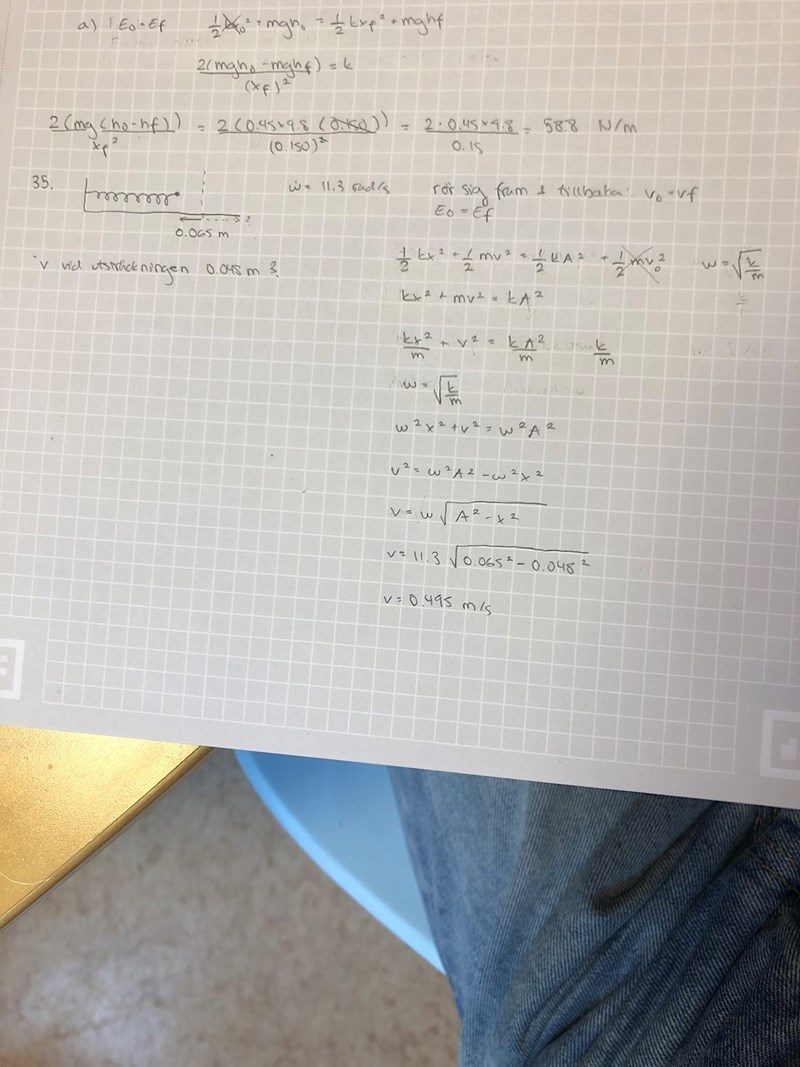 a) E₀ = Ef ½kx₀² + mgh₀ = ½kxf² + mghf
2(mgh₀ - mghf) / (xf)² = k
2(mg(h₀-hf)) / xf² = 2(0.45×9.8(0.150)) / (0.150)² = 2·0.45×9.8 / 0.15 = 58.8 N/m
35. ω = 11.3 rad/s rör sig fram & tillbaka: v₀ = vf
E₀ = Ef
0.065 m
v vid utsträckningen 0.048 m ?
½kx² + ½mv² = ½kA² + ½mv₀² ω = √(k/m)
kx² + mv² = kA²
kx²/m + v² = kA²/m k/m
ω = √(k/m)
ω²x² + v² = ω²A²
v² = ω²A² - ω²x²
v = ω√(A² - x²)
v = 11.3 √(0.065² - 0.048²)
v = 0.495 m/s